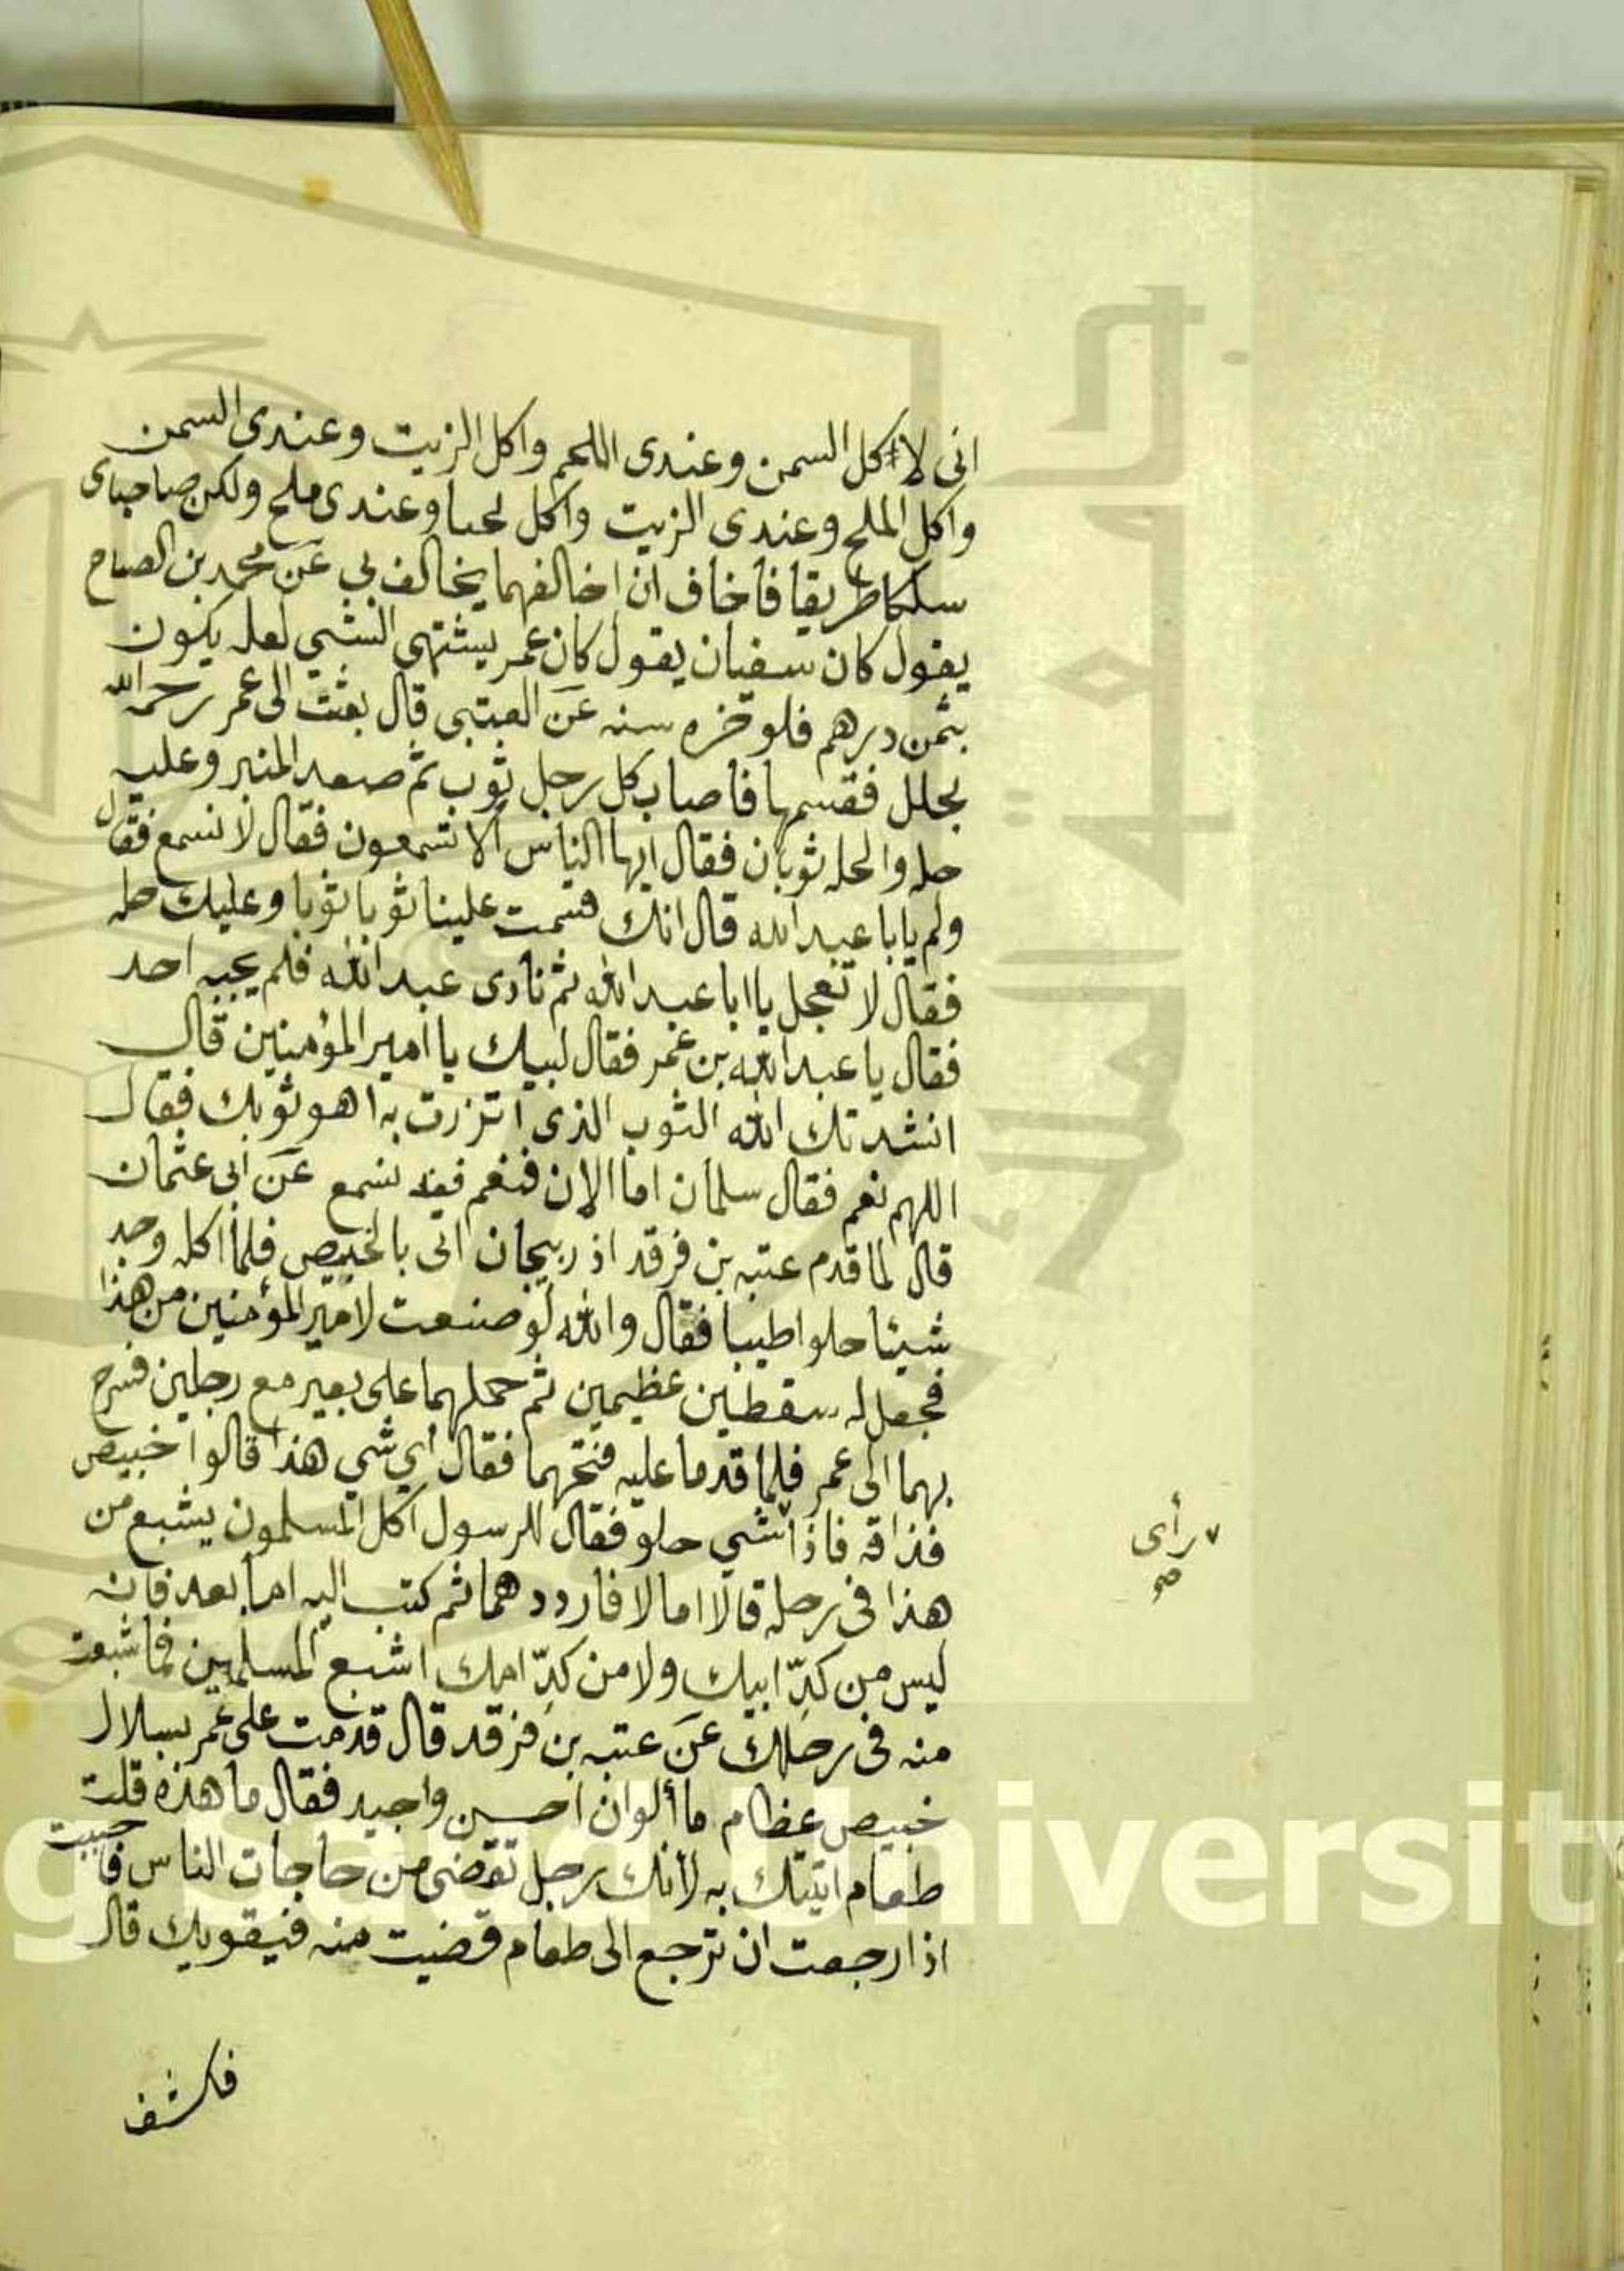 انى لا اكل السمن وعندى اللحم واكل الزيت وعندى السمن
واكل الملح وعندى الزيت واكل لحما وعندى ملح ولكن صاحباى
سلكا طريقا فاخاف ان اخالفهما يخالف بى عن محمد بن الصباح
يقول كان سفيان يقول كان عمر يشتهى الشي لعله يكون
بثمن درهم فلوخره سنه عن العتبى قال بعثت الى عمر رحمه الله
بحلل فقسمها فاصاب كل رجل ثوب ثم صعد المنبر وعليه
حله والحله ثوبان فقال ايها الناس الا تسمعون فقال لا نسمع فقال
ولم يابا عبد الله قال انك قسمت علينا ثوبا ثوبا وعليك حله
فقال لا تعجل يا ابا عبد الله ثم نادى عبد الله فلم يجبه احد
فقال يا عبد الله بن عمر فقال لبيك يا امير المؤمنين قال
انشدتك الله الثوب الذى اتزرت به اهو ثوبك فقال
اللهم نعم فقال سلمان اما الان فنعم فقد نسمع عن ابى عثمان
قال لما قدم عتبه بن فرقد اذربيجان اتى بالخبيص فلما اكله وجد
شيئا حلوا طيبا فقال والله لو صنعت لامير المؤمنين من هذا
فجعل له سقطين عظيمين ثم حملهما على بعير مع رجلين فسرح
بهما الى عمر فلما قدما عليه فتحهما فقال أي شي هذا قالوا خبيص
فذاقه فاذا شي حلو فقال للرسول اكل المسلمون يشبع من
هذا فى رحله قالا اما لا فارددهما ثم كتب اليه اما بعد فانه
ليس من كدّ ابيك ولا من كدّ امك اشبع المسلمين مما شبعت
منه فى رحلك عن عتبه بن فرقد قال قدمت على عمر بسلال
خبيص عظام ما ألوان احسن واجيد فقال ما هذه قلت
طعام اتيتك به لانك رجل تقضى من حاجات الناس فاحببت
اذا رجعت ان ترجع الى طعام قضيت منه فيقويك قال
فكشف
رأى
صح
King Saud University
جامعة الملك